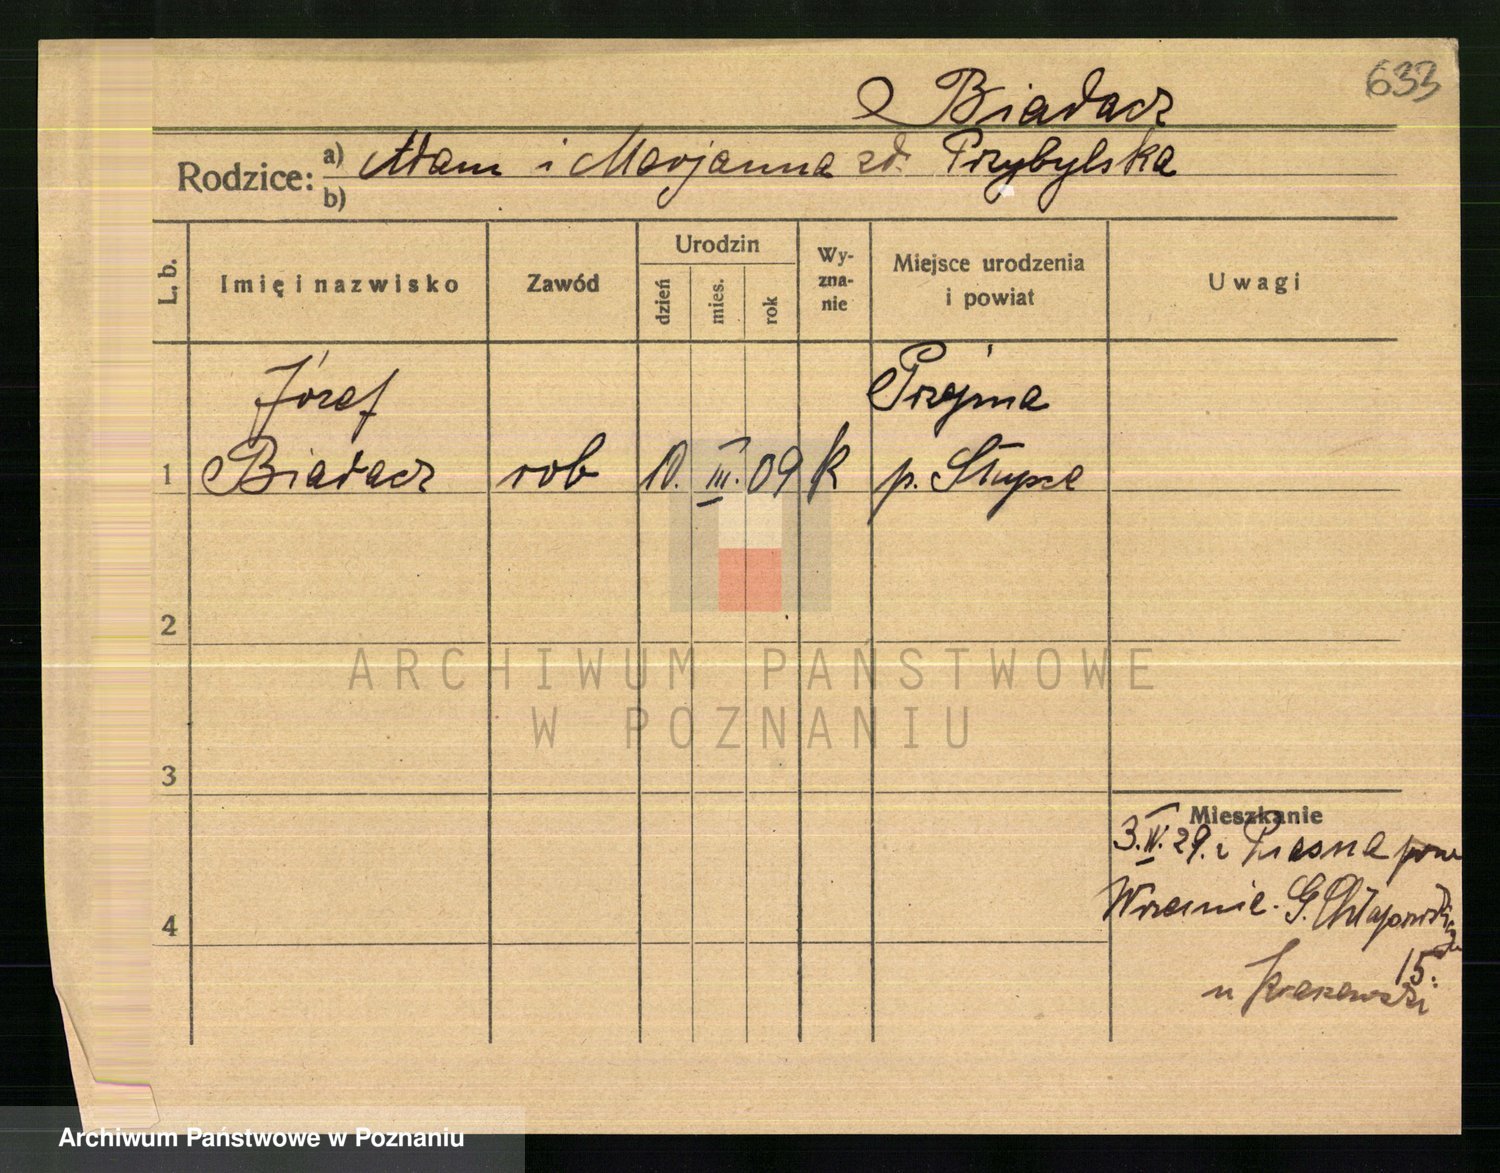 633
Biadacz
Rodzice: a) Adam i Marjanna zd. Przybylska
b)
L. b.
Imię i nazwisko
Zawód
Urodzin
dzień
mies.
rok
Wy-
zna-
nie
Miejsce urodzenia
i powiat
Uwagi
Józef
Biadacz
rob
10. III. 09
k
Pyzdry
1
2
3
4
Mieszkanie
3. IV. 29. z
Wrześnie. G. Chłapowskiego
15.
u
ARCHIWUM PAŃSTWOWE
W POZNANIU
Archiwum Państwowe w Poznaniu